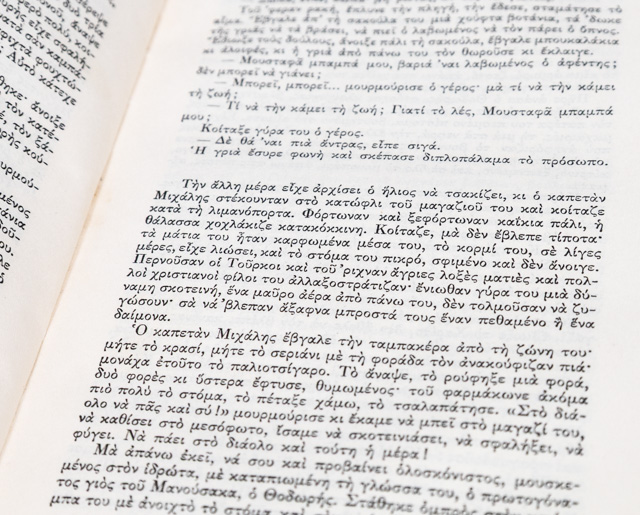 μέρα τοῦ
πολύ,
Τοῦ ᾽ριψαν ρακή, ἔκλυνε τὴν πληγή, τὴν ἔδεσε, σταμάτησε τὸ
αἷμα. Ἔβγαλε ἀπ᾽ τὴ σακούλα του μιὰ χούφτα βοτάνια, τὰ ᾽δωκε
τῆς γριᾶς νὰ τὰ βράσει, νὰ πιεῖ ὁ λαβωμένος νὰ τὸν πάρει ὁ ὕπνος.
τοὺς δούλους, ἄνοιξε πάλι τὴ σακούλα, ἔβγαλε μπουκαλάκια
κι ἀλοιφές, κι ἡ γριὰ ἀπὸ πάνω του τὸν θωροῦσε κι ἔκλαιγε.
— Μουσταφὰ μπαμπά μου, βαριὰ ᾽ναι λαβωμένος ὁ ἀφέντης;
δὲν μπορεῖ νὰ γιάνει;
— Μπορεῖ, μπορεῖ... μουρμούρισε ὁ γέρος· μὰ τί νὰ τὴν κάμει
τὴ ζωή;
— Τί νὰ τὴν κάμει τὴ ζωή; Γιατί τὸ λές, Μουσταφὰ μπαμπά
μου;
Κοίταξε γύρα του ὁ γέρος.
— Δὲ θά ᾽ναι πιὰ ἄντρας, εἶπε σιγά.
Ἡ γριὰ ἔσυρε φωνὴ καὶ σκέπασε διπλοπάλαμα τὸ πρόσωπο.
Τὴν ἄλλη μέρα εἶχε ἀρχίσει ὁ ἥλιος νὰ τσακίζει, κι ὁ καπετὰν
Μιχάλης στέκουνταν στὸ κατώφλι τοῦ μαγαζιοῦ του καὶ κοίταζε
κατὰ τὴ λιμανόπορτα. Φόρτωναν καὶ ξεφόρτωναν καΐκια πάλι, ἡ
θάλασσα χοχλάκιζε κατακόκκινη. Κοίταζε, μὰ δὲν ἔβλεπε τίποτα·
τὰ μάτια του ἦταν καρφωμένα μέσα του, τὸ κορμί του, σὲ λίγες
μέρες, εἶχε λιώσει, καὶ τὸ στόμα του πικρό, σφιμένο καὶ δὲν ἄνοιγε.
Περνοῦσαν οἱ Τοῦρκοι καὶ τοῦ ᾽ριχναν ἄγριες λοξὲς ματιὲς καὶ πολ-
λοὶ χριστιανοὶ φίλοι του ἀλλαξοστράτιζαν· ἔνιωθαν γύρα του μιὰ δύ-
ναμη σκοτεινή, ἕνα μαῦρο ἀέρα ἀπὸ πάνω του, δὲν τολμοῦσαν νὰ ζυ-
γώσουν· σὰ νά ᾽βλεπαν ἄξαφνα μπροστά τους ἕναν πεθαμένο ἢ ἕνα
δαίμονα.
Ὁ καπετὰν Μιχάλης ἔβγαλε τὴν ταμπακέρα ἀπὸ τὴ ζώνη του·
μήτε τὸ κρασί, μήτε τὸ σεριάνι μὲ τὴ φοράδα τὸν ἀνακούφιζαν πιά·
μονάχα ἐτοῦτο τὸ παλιοτσίγαρο. Τὸ ἄναψε, τὸ ρούφηξε μιὰ φορά,
δυὸ φορὲς κι ὕστερα ἔφτυσε, θυμωμένος· τοῦ φαρμάκωνε ἀκόμα
πιὸ πολὺ τὸ στόμα, τὸ πέταξε χάμω, τὸ τσαλαπάτησε. «Στὸ διά-
ολο νὰ πᾶς καὶ σύ!» μουρμούρισε κι ἔκαμε νὰ μπεῖ στὸ μαγαζί του,
νὰ καθίσει στὸ μεσόφωτο, ἴσαμε νὰ σκοτεινιάσει, νὰ σφαλήξει, νὰ
φύγει. Νὰ πάει στὸ διάολο καὶ τούτη ἡ μέρα!
Μὰ ἀπάνω ἐκεῖ, νά σου καὶ προβαίνει ὁλοσκόνιστος, μουσκε-
μένος στὸν ἱδρώτα, μὲ καταπιωμένη τὴ γλώσσα του, ὁ πρωτογονά-
τος γιὸς τοῦ Μανούσακα, ὁ Θοδωρής. Στάθηκε ὀμπρὸς στὸν
μπα του μὲ ἀνοιχτὸ τὸ στόμα